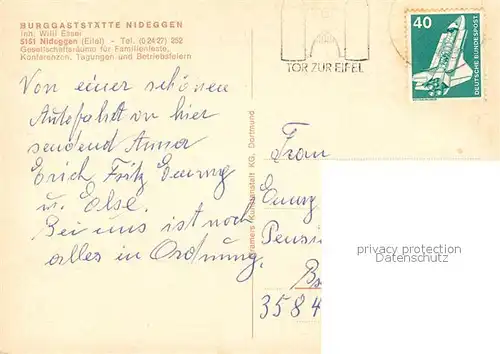 BURGGASTSTÄTTE NIDEGGEN
Inh. Willi Esser
5161 Nideggen (Eifel) - Tel. (0 24 27) 252
Gesellschaftsräume für Familienfeste,
Konferenzen, Tagungen und Betriebsfeiern
TOR ZUR EIFEL
40
DEUTSCHE BUNDESPOST
Von einer schönen
Autofahrt von hier
sendend Anna
Erich Fritz Emmy
u. Else.
Bei uns ist noch
alles in Ordnung.
Cramers Kunstanstalt KG, Dortmund
Frau
Emmy
Pensi
3584
privacy protection
Datenschutz